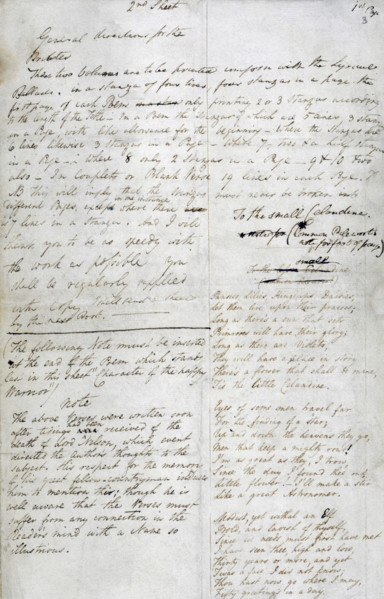 2nd Sheet
1st Page
3
General directions for the
Printer
These two Columns are to be printed
Ballads. in a stanza of four lines, four stanzas in a page the
first page of each Poem only printing 2 or 3 stanzas according
to the length of the title - In a Poem the stanzas of which are 5 lines, 3 stanzas
on a Page, with like allowance for the beginning - Where the stanzas are
6 lines likewise 3 stanzas in a Page - Where 7, lines
in a Page - where 8 only 2 stanzas in a Page - 9 & 10 two
also - In Couplets or Blank Verse 19 lines in each Page.
NB this will imply that the stanzas
different Pages, except when there
17 lines in a stanza. And I will
thank you to be as speedy with
the work as possible you
shall be regularly supplied
with copy,
by the next Post.
must never be broken into
To the small Celandine
(Common Pilewort)
(The following Note must be inserted
at the end of the Poem which stands
1st in this sheet "Character of the happy
Warrior"
Note
The above Verses were written soon
after tidings had been received of the
death of Lord Nelson, which event
directed the author's thoughts to the
subject. His respect for the memory
of his great fellow-countryman induces
him to mention this; though he is
well aware that the Verses must
suffer from any connection in the
Readers mind with a Name so
illustrious.
Pansies, Lilies, Kingcups, Daisies,
Let them live upon their praises;
Long as there's a sun that sets
Primroses will have their glory;
Long as there are Violets,
They will have a place in story:
There's a flower that shall be mine,
'Tis the little Celandine.
Eyes of some men travel far
For the finding of a star;
Up and down the heavens they go,
Men that keep a mighty rout!
I'm as great as they, I trow,
Since the day I found thee out,
Little flower - I'll make a stir
Like a great Astronomer.
Modest, yet withal an Elf
Bold, and lavish of thyself,
Since we needs must first have met
I have seen thee, high and low,
Thirty years or more, and yet
'Twas a face I did not know;
Thou hast now, go where I may,
Fifty greetings in a day.